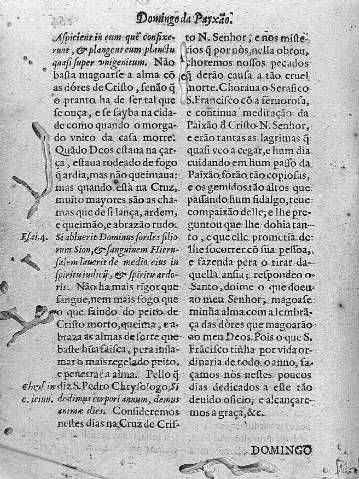 Domingo da Payxão.
Aspicient in eum quẽ confixe-
runt, & plangent eum planctu
quasi super vnigenitum. Não
basta magoarse a alma cõ
as dóres de Cristo, senão q̃
o pranto ha de ser tal que
se ouça, e se sayba na cida-
de como quando o morga-
do vnico da casa morre.
Quãdo Deos estaua na çar-
ça, estaua rodeado de fogo
q̃ ardia, mas não queimaua:
mas quando està na Cruz,
muito mayores são as cha-
mas que de si lança, ardem,
e queimão, e abrazão tudo.
Esai.4. Si abluerit Dominus sordes filio-
rum Sion, & sanguinem Hieru-
salem lauerit de medio eius in
spiritu iudicij, & spiritu ardo-
ris. Não ha mais rigor que
sangue, nem mais fogo que
o que saindo do peito de
Cristo morto, queima, e a-
braza as almas de sorte que
basta hũa faisca, pera infla-
mar o mais regelado peito,
e penetrar a alma. Pello q̃
Chrys. in diz S. Pedro Chrysologo, Si
c. ieiun. dedimus corpori annum, demus
animæ dies. Consideremos
nestes dias na Cruz de Cris-
to N. Senhor, e nos miste-
rios q̃ por nòs, nella obrou,
choremos nossos peccados
q̃ derão causa a tão cruel
morte. Choraua o Serafico
S. Francisco cõ a feruorosa,
e continua meditação da
Paixão d' Cristo N. Senhor,
e erão tantas as lagrimas q̃
quasi veo a cegar, e hum dia
cuidando em hum passo da
Paixão forão tão copiosas,
e os gemidos tão altos que
passando hum fidalgo, teue
compaixão delle, e lhe pre-
guntou que lhe dohia tan-
to, e que elle prometia de
lhe socorrer cõ sua pessoa,
e fazenda pera o tirar da-
quella ansia; respondeo o
Santo, doime o que doem
ao meu Senhor, magoase
minha alma com a lembrã-
ça das dóres que magoarão
ao meu Deos. Pois o que S.
Francisco tinha por vida or-
dinaria de todo o anno, fa-
çamos nòs nestes poucos
dias dedicados a este tão
deuido oficio, e alcançare-
mos a graça, &c.
DOMINGO